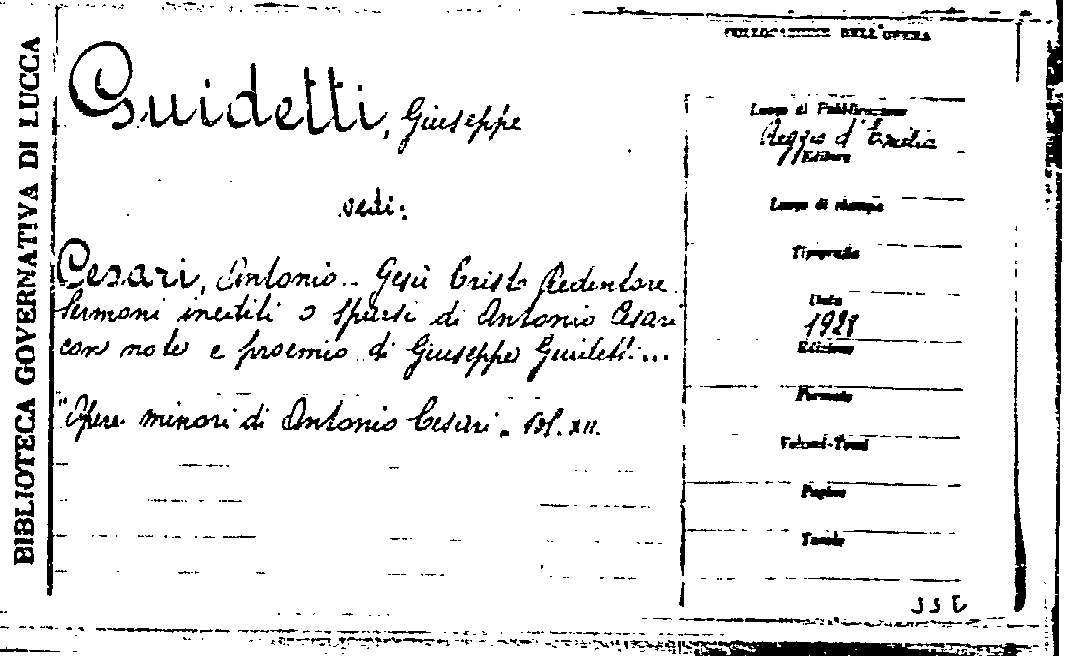 BIBLIOTECA GOVERNATIVA DI LUCCA
COLLOCAZIONE DELL'OPERA
Guidetti, Giuseppe
vedi:
Cesari, Antonio.. Gesù Cristo Redentore
Sermoni inediti o sparsi di Antonio Cesari
con note e proemio di Giuseppe Guidetti...
"Opere minori di Antonio Cesari". Vol. XII.
Luogo di Pubblicazione
Reggio d'Emilia
Editore
Luogo di stampa
Tipografia
Data
1928
Edizione
Formato
Volumi-Tomi
Pagine
Tavole